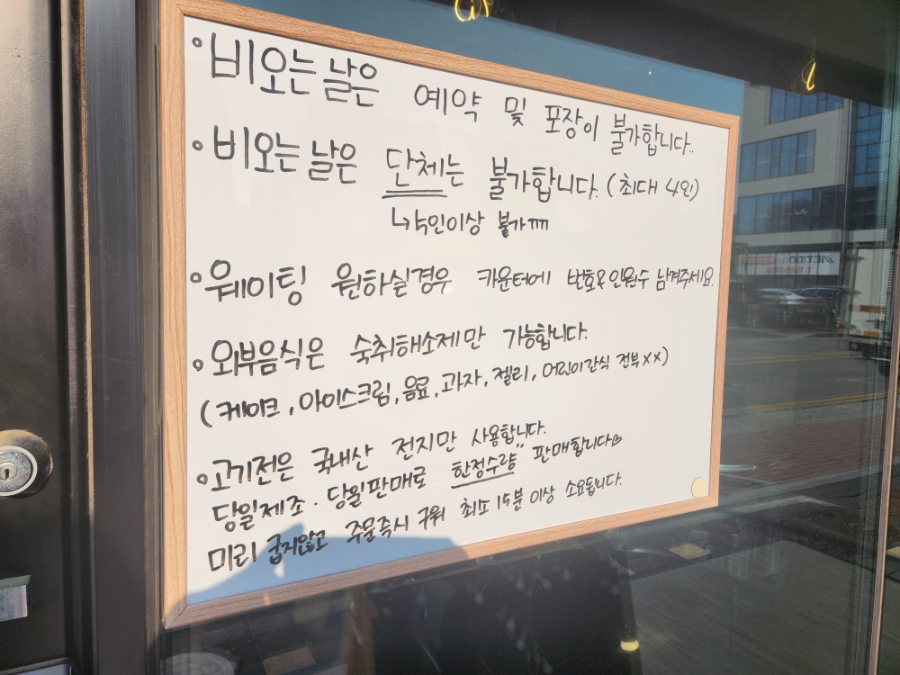 ° 비오는 날은 예약 및 포장이 불가합니다..
° 비오는 날은 단체는 불가합니다. (최대 4인)
↳ 5인이상 불가ㅠㅠ
° 웨이팅 원하실경우 카운터에 번호&인원수 남겨주세요.
° 외부음식은 숙취해소제만 가능합니다.
(케이크, 아이스크림, 음료, 과자, 젤리, 어린이간식 전부 xx)
° 고기전은 국내산 전지만 사용합니다.
당일제조·당일판매로 한정수량" 판매합니다
미리 굽지않고 주문즉시 구워 최소 15분 이상 소요됩니다.